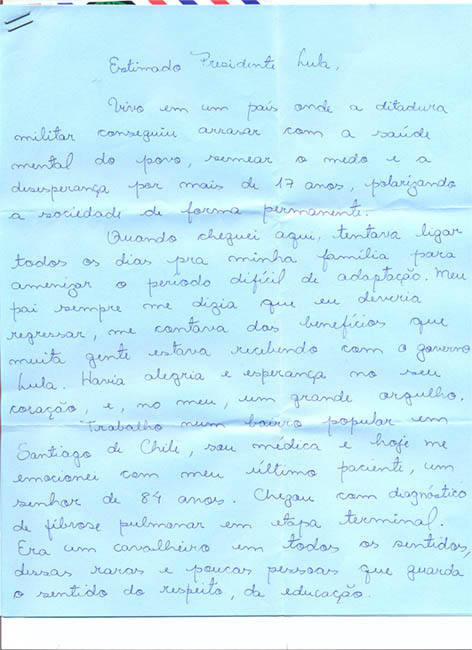 Estimado Presidente Lula,
Vivo em um país onde a ditadura
militar conseguiu arrasar com a saúde
mental do povo, semear o medo e a
desesperança por mais de 17 anos, polarizando
a sociedade de forma permanente.
Quando cheguei aqui, tentava ligar
todos os dias pra minha família para
amenizar o período difícil de adaptação. Meu
pai sempre me dizia que eu deveria
regressar, me contava dos benefícios que
muita gente estava recebendo com o governo
Lula. Havia alegria e esperança no seu
coração, e, no meu, um grande orgulho.
Trabalho num bairro popular em
Santiago de Chile, sou médica e hoje me
emocionei com meu último paciente, um
senhor de 84 anos. Chegou com diagnóstico
de fibrose pulmonar em etapa terminal.
Era um cavalheiro em todos os sentidos,
dessas raras e poucas pessoas que guarda
o sentido do respeito, da educação.